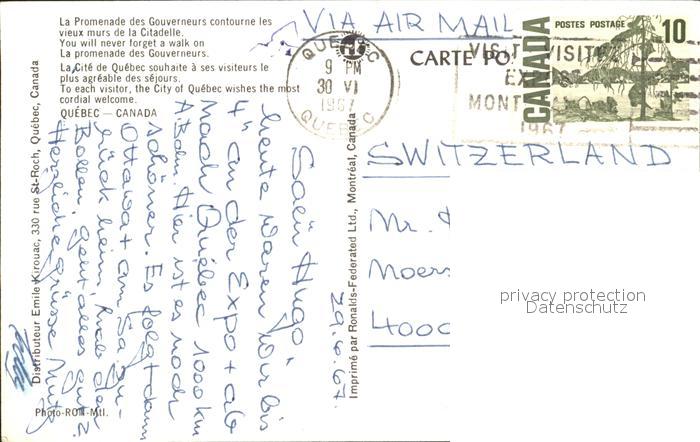 La Promenade des Gouverneurs contourne les
vieux murs de la Citadelle.
You will never forget a walk on
La Promenade des Gouverneurs.
La Cité de Québec souhaite à ses visiteurs le
plus agréable des séjours.
To each visitor, the City of Québec wishes the most
cordial welcome.
QUÉBEC — CANADA
VIA AIR MAIL
CARTE PO
QUÉBEC
9 PM
30 VI
1967
QUÉBEC
VISIT VISITEZ
EX
MONT
1967
POSTES POSTAGE
10
CANADA
SWITZERLAND
Mr.
Moers
4000
privacy protection
Datenschutz
29.6.67.
Salü Hugo,
heute waren wir bis
4" an der Expo + ab
nach Québec 1000 km
A.Bahn. Hier ist es noch
schöner. Es folgt dann
Ottawa + am Sa zu-
rück heim,
geht alles gut?
Herzliche grüsse
Distributeur Emile Kirouac, 330 rue St-Roch, Québec, Canada
Imprimé par Ronalds-Federated Ltd., Montréal, Canada
Photo-ROM-Mtl.